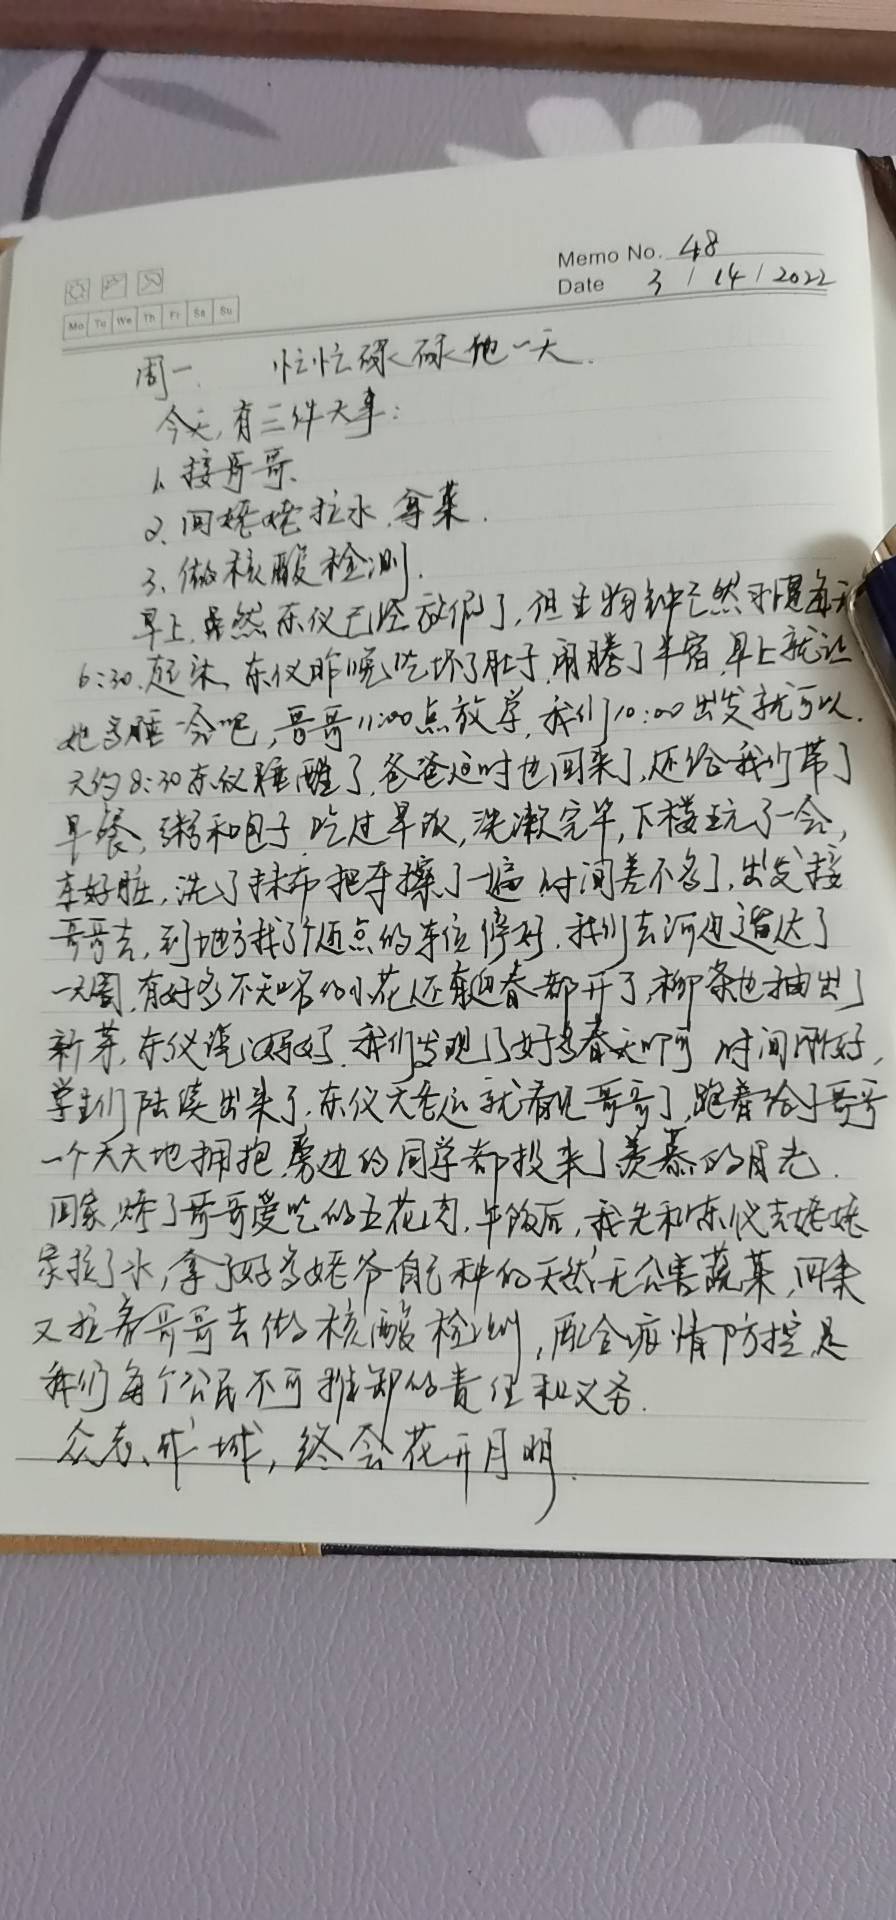 Memo No. 48
Date 3 / 14 / 2022
Mo Tu We Th Fr Sa Su
周一. 忙忙碌碌地一天.
今天,有三件大事:
1、接哥哥、
2、回姥姥拉水、拿菜.
3、做核酸检测.
早上,虽然东仪已经放假了,但生物钟已然习惯每天
6:30.起床,东仪昨晚吃坏了肚子,闹腾了半宿,早上就让
她多睡一会吧,哥哥11:00点放学,我们10:00出发就可以.
大约8:30东仪睡醒了,爸爸这时也回来了,还给我们带了
早餐,粥和包子,吃过早饭,洗漱完毕,下楼玩了一会,
车好脏,洗了抹布把车擦了一遍,时间差不多了,出发接
哥哥去,到地方找了个近点的车位停好,我们去河边溜达了
一大圈,有好多不知名的小花还有迎春都开了,柳条也抽出了
新芽,东仪说:妈妈,我们发现了好多春天啊 时间刚好,
学生们陆续出来了,东仪大老远就看见哥哥了,跑着给了哥哥
一个大大地拥抱,旁边的同学都投来了羡慕的目光.
回家,炖了哥哥爱吃的五花肉,午饭后,我先和东仪去姥姥
家拉了水,拿了好多姥爷自己种的天然无公害蔬菜,回来
又拉着哥哥去做核酸检测,配合疫情防控,是
我们每个公民不可推卸的责任和义务.
众志成城,终会花开月明.